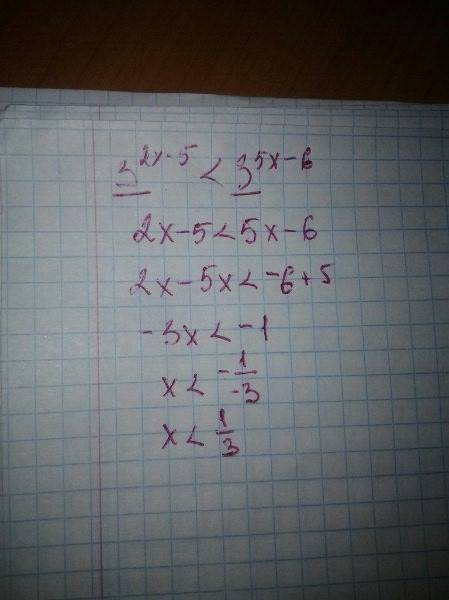 3^{2x-5} < 3^{5x-6}
2x-5<5x-6
2x-5x<-6+5
-3x<-1
x< \frac{-1}{-3}
x< \frac{1}{3}